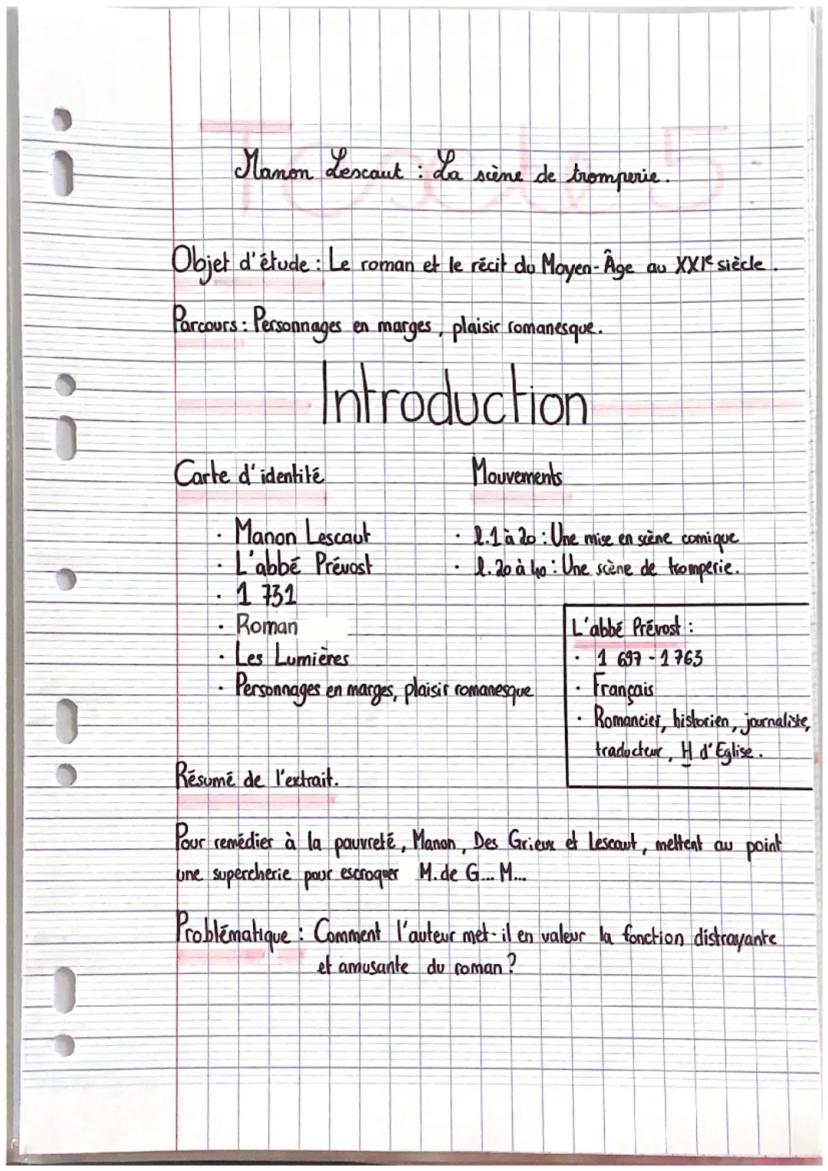 Texte 5
Manon Lescaut : La scène de tromperie.
Objet d'étude : Le roman et le récit du Moyen-Âge au XXIe siècle.
Parcours : Personnages en marges, plaisir romanesque.
Introduction
Carte d'identité
· Manon Lescaut
· L'abbé Prévost
· 1 731
· Roman
· Les Lumières
· Personnages en marges, plaisir romanesque
Mouvements
· l.1 à 20 : Une mise en scène comique
· l.20 à 40 : Une scène de tromperie.
L'abbé Prévost :
· 1 697 - 1 763
· Français
· Romancier, historien, journaliste,
traducteur, H d'Eglise.
Résumé de l'extrait.
Pour remédier à la pauvreté, Manon, Des Grieux et Lescaut, mettent au point
une supercherie pour escroquer M. de G... M...
Problématique : Comment l'auteur met-il en valeur la fonction distrayante
et amusante du roman ?